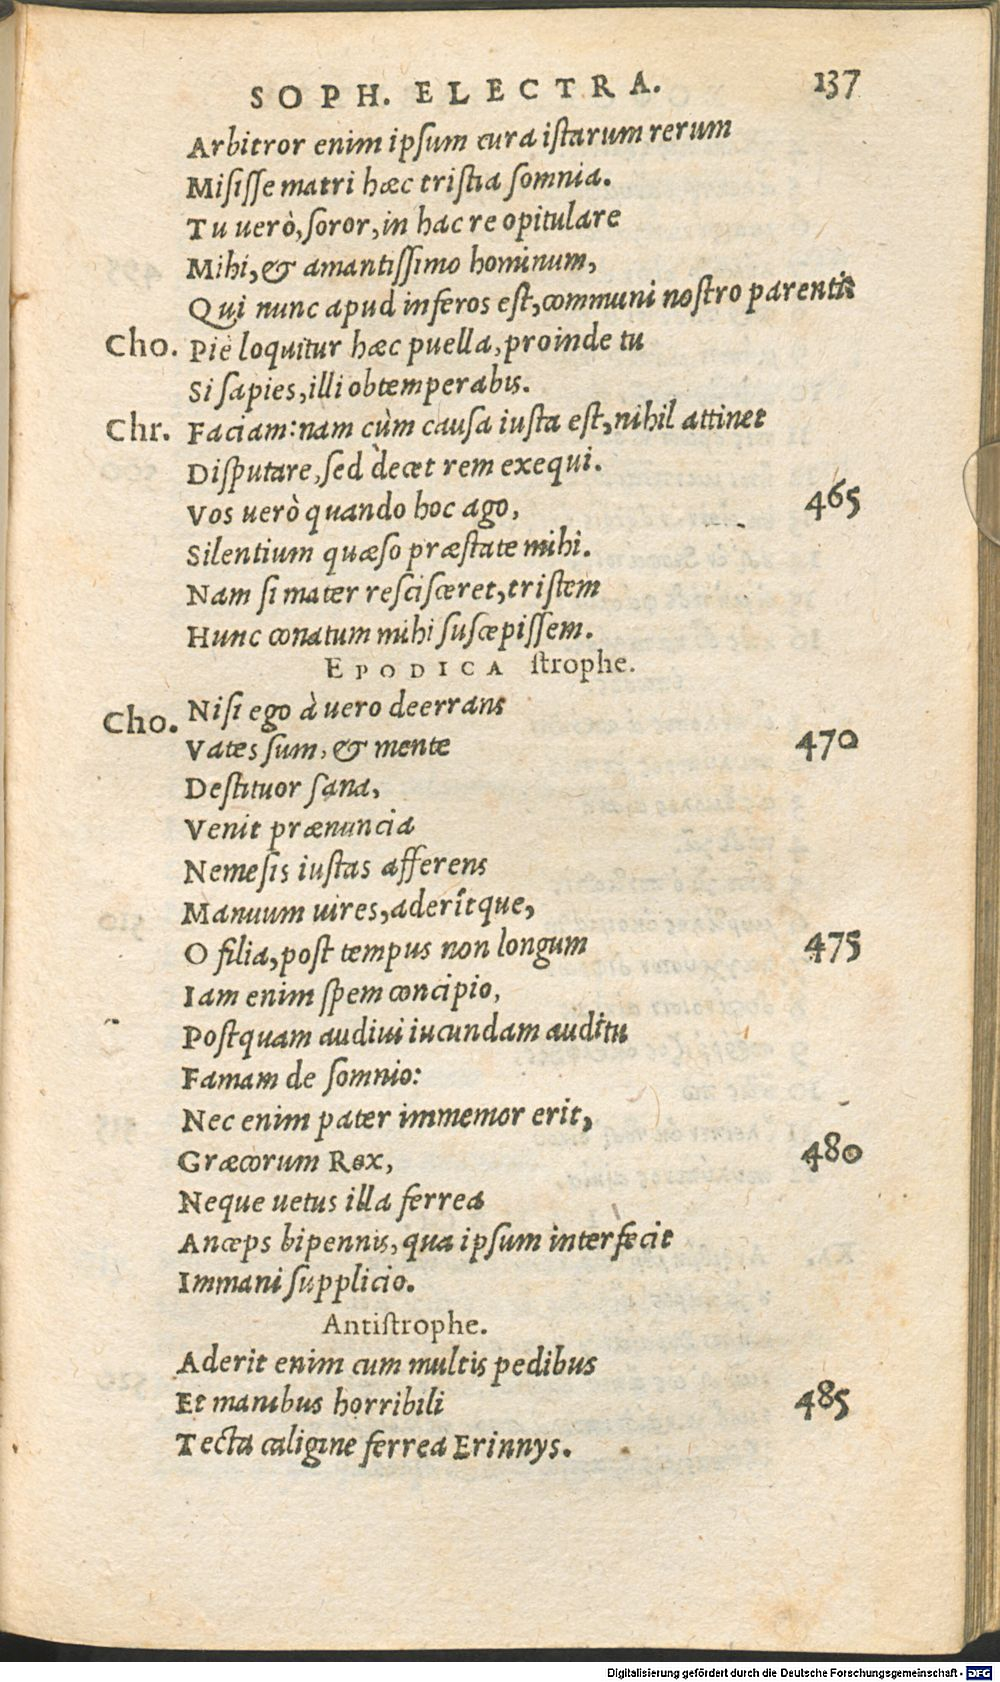 SOPH. ELECTRA. 137
Arbitror enim ipsum cura istarum rerum
Misisse matri hæc tristia somnia.
Tu uerò, soror, in hac re opitulare
Mihi, & amantissimo hominum,
Qui nunc apud inferos est, communi nostro parentis
Cho. Piè loquitur hæc puella, proinde tu
Si sapies, illi obtemperabis.
Chr. Faciam: nam cùm causa iusta est, nihil attinet
Disputare, sed decet rem exequi.
Vos uerò quando hoc ago, 465
Silentium quæso præstate mihi.
Nam si mater rescisceret, tristem
Hunc conatum mihi suscepissem.
EPODICA strophe.
Cho. Nisi ego à uero deerrans
Vates sum, & mente 470
Destituor sana,
Venit prænuncia
Nemesis iustas afferens
Manuum uires, aderítque,
O filia, post tempus non longum 475
Iam enim spem concipio,
Postquam audiui iucundam auditu
Famam de somnio:
Nec enim pater immemor erit,
Græcorum Rex, 480
Neque uetus illa ferrea
Anceps bipennis, qua ipsum interfecit
Immani supplicio.
Antistrophe.
Aderit enim cum multis pedibus
Et manibus horribili 485
Tecta caligine ferrea Erinnys.
Digitalisierung gefördert durch die Deutsche Forschungsgemeinschaft - DFG